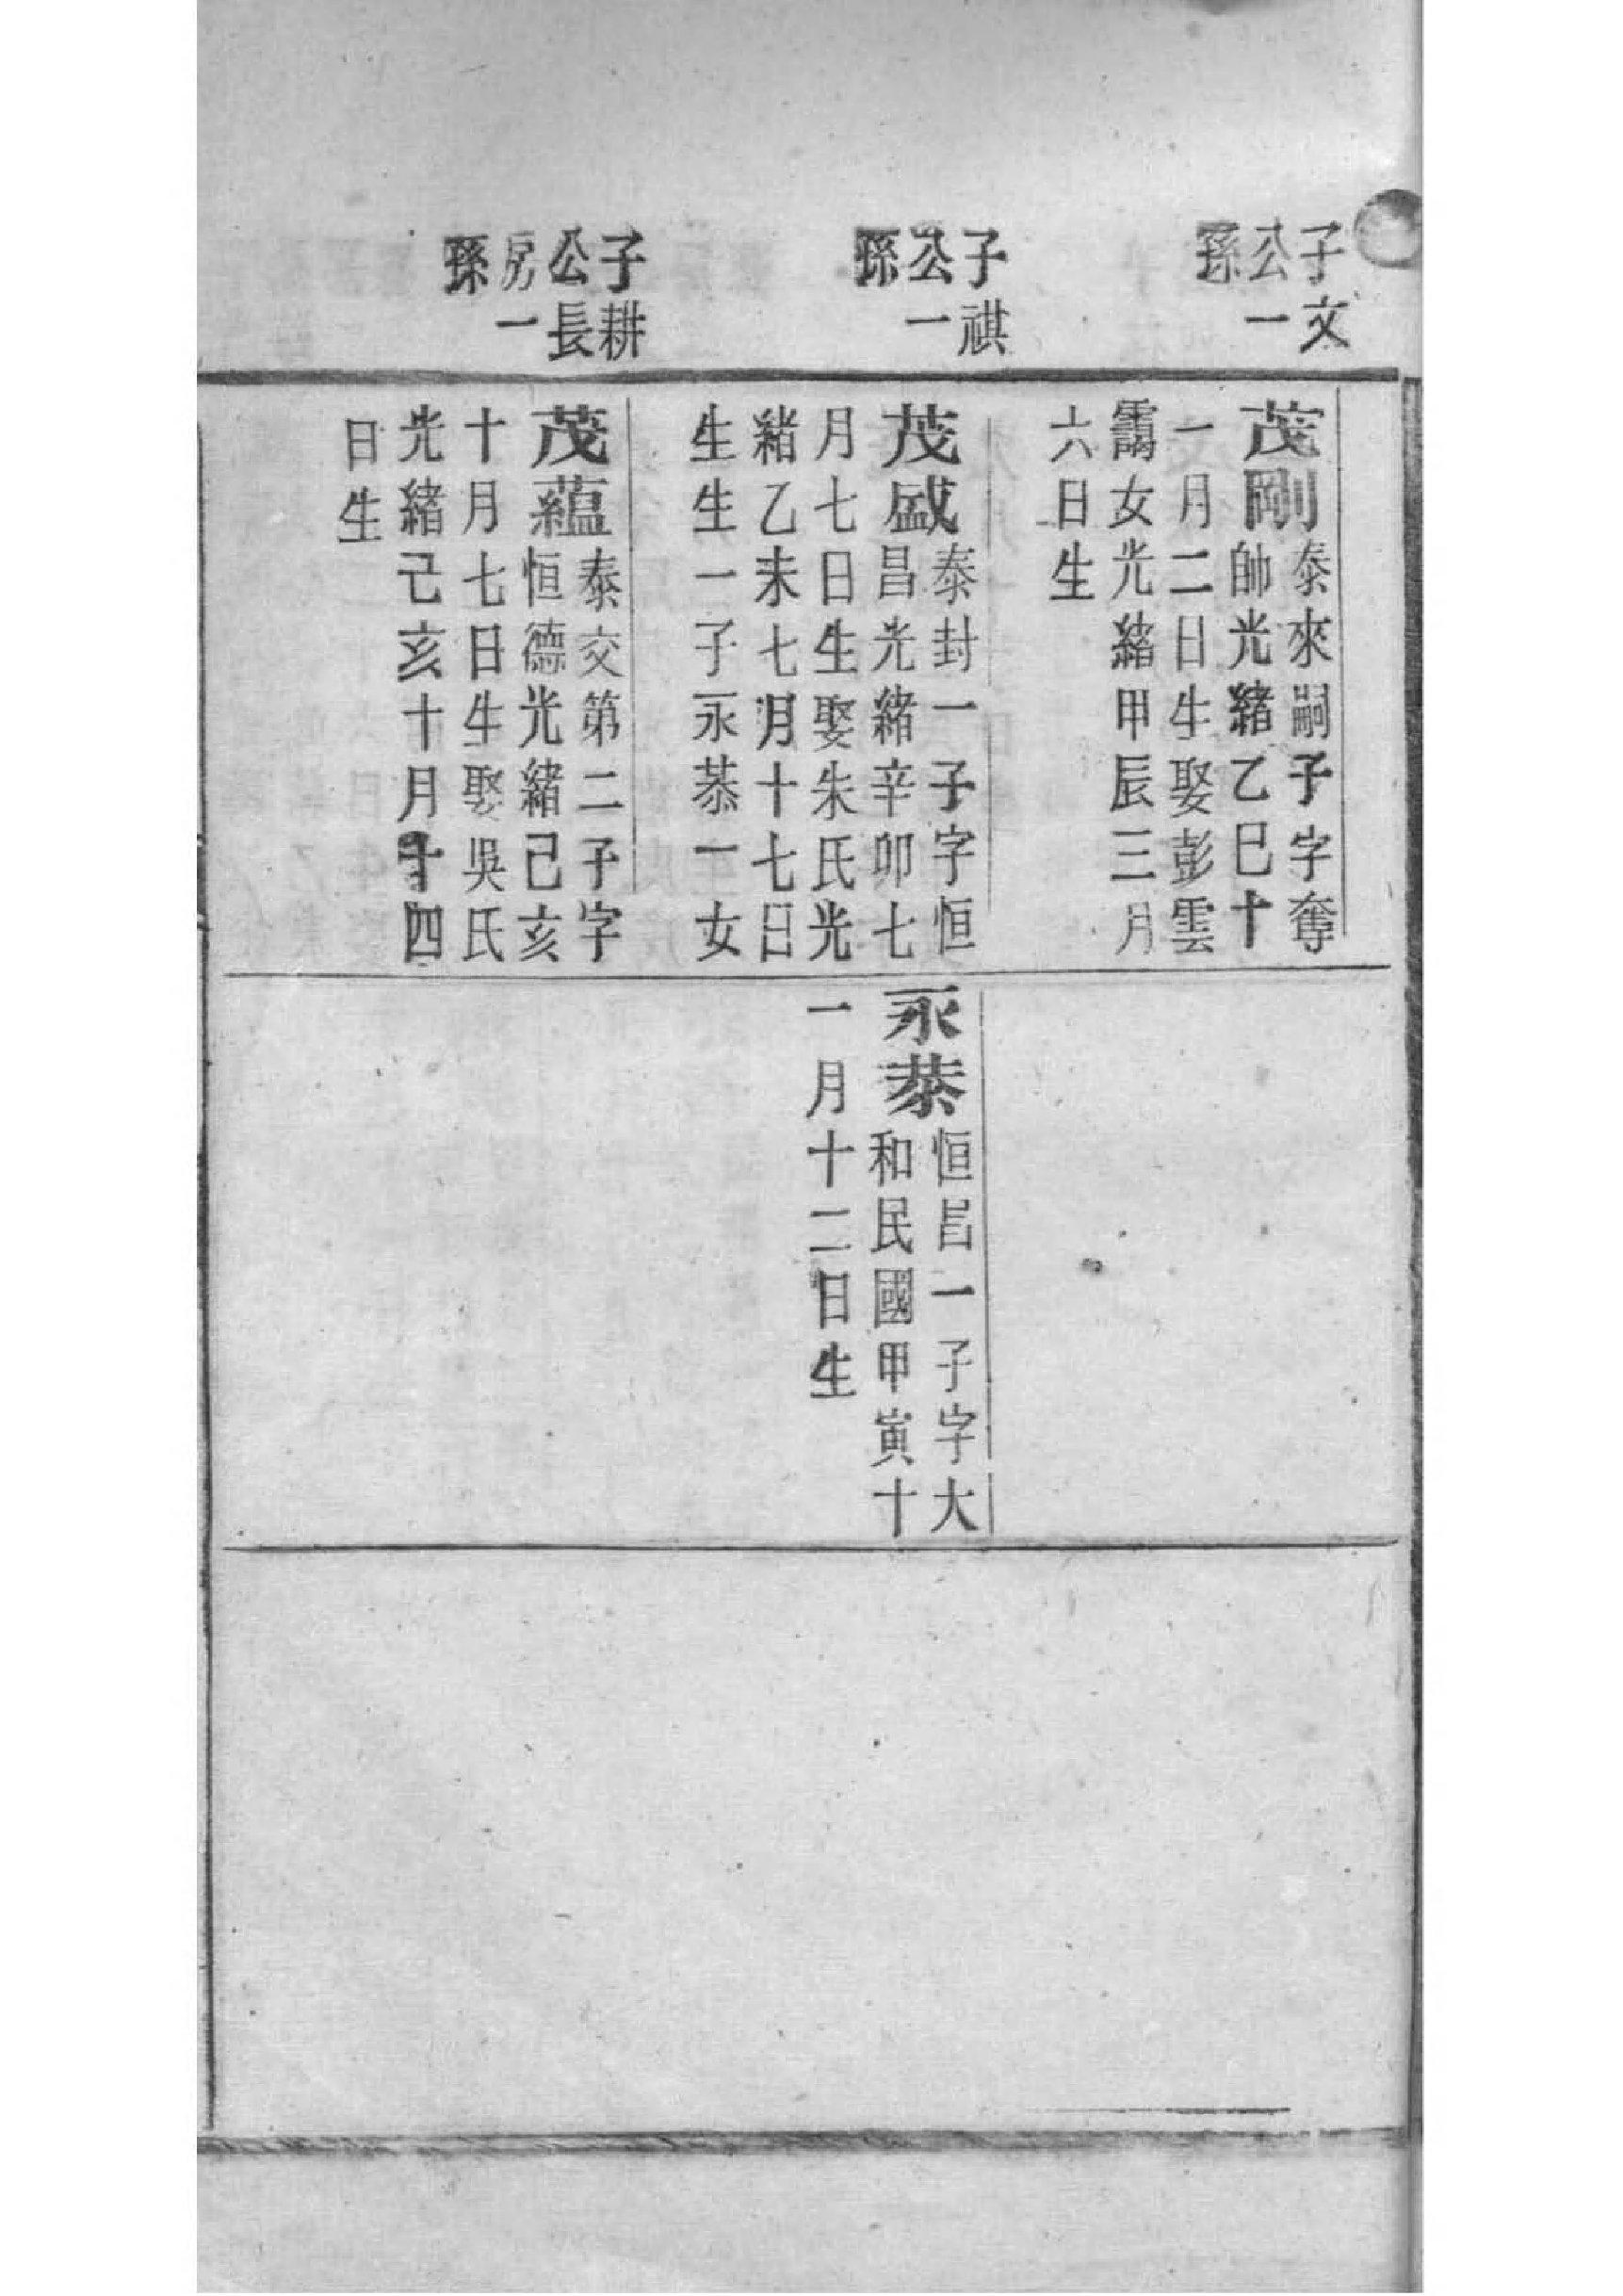 子文
公一
孫
茂剛泰來嗣子字奪
帥光緒乙巳十
一月二日生娶彭雲
靄女光緒甲辰三月
六日生
子祺
公一
孫
茂盛泰封一子字恒
昌光緒辛卯七
月七日生娶朱氏光
緒乙未七月十七日
生生一子永恭一女
永恭恒昌一子字大
和民國甲寅十
一月十二日生
子耕
公長
房一
孫
茂蘊泰交第二子字
恒德光緒己亥
十月七日生娶吳氏
光緒己亥十月十四
日生